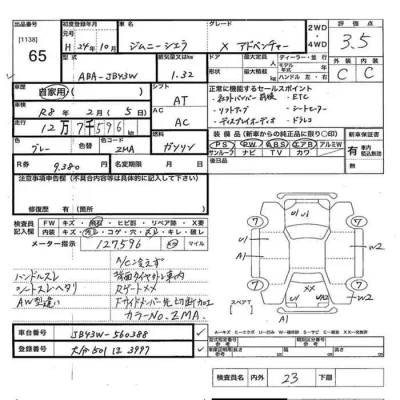 出品番号 [1138] 65
初度登録年月 H 24年 10月
車名 ジムニーシエラ
グレード X アドベンチャー
2WD ・ 4WD
評価点 3.5
型式 ABA-JB43W
排気量又はkW 1.32
ドア 形状
最大定員 最大積載
ディーラー・並行
モデル年式
ハンドル 左・右
外装 C
内装 C
車歴 自家用
車検 R8年 2月 (5日)
走行 12万7千596km
シフト AT
エアコン AC
外色 グレー
色替
カラーNo. ZMA
燃料 ガソリン
R券 9,380円
名変期限 月 日
正常に機能するセールスポイント
・リフトアップ
・シートヒーター
・ETC
・ディスプレイオーディオ
・ドラレコ
装備品(新車からの純正品に限り〇印)
PS PW ABS エアB アルミW
サンルーフ ナビ TV カワ
新車保証書 有
後日品
注意事項申告欄(不具合内容等は詳しく記入してください。)
修復歴 有( 箇所) 無
検査員記入欄
FW キズ・飛石・ヒビ割・リペア跡・X要
内装 キズ・汚れ・コゲ・穴・キレ・破レ
メーター指示 127,596 km マイル
ハンドルスレ
シートスレヘタリ
AW型違い
背面タイヤカバー車内
RゲートXX
Fサイドメンバー先切断加工
カラーNo.ZMA
スペアT
U1
U1
A1
XX
W2
W2
A1
7
7
7
7
車台番号 JB43W-560388
登録番号 大分 501 は 3997
検査員 内外 23 下廻